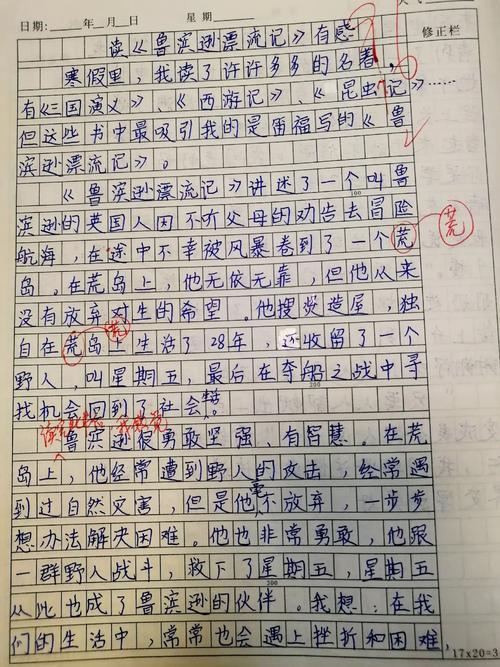 日期：　年　月　日　星期　天气
修正栏
读《鲁滨逊漂流记》有感
寒假里，我读了许许多多的名著，
有《三国演义》、《西游记》、《昆虫记》……
但这些书中最吸引我的是笛福写的《鲁
滨逊漂流记》。
《鲁滨逊漂流记》讲述了一个叫鲁
100
滨逊的英国人因不听父母的劝告去冒险
航海，在途中不幸被风暴卷到了一个荒
荒
岛。在荒岛上，他无依无靠，但他从来
没有放弃对生的希望。他搜
造屋，独
荒
自在荒岛上生活了28年，还收留了一个
野人，叫星期五，最后在夺船之战中寻
200
找机会回到了社会。
鲁滨逊很勇敢坚强、有智慧。在荒
岛上，他经常遭到野人的攻击，经常遇
到过自然灾害，但是他不放弃，一步步
想办法解决困难。他也非常勇敢，他跟
一群野人战斗，救下了星期五，星期五
300
从此也成了鲁滨逊的伙伴。我想：在我
们的生活中，常常也会遇上挫折和困难，
17×20=3